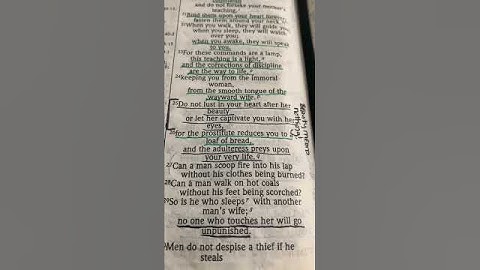 and do not forsake your mother's
teaching.
21Bind them upon your heart forever;
fasten them around your neck.
22When you walk, they will guide you;
when you sleep, they will watch
over you;
when you awake, they will speak
to you.
23For these commands are a lamp,
this teaching is a light,
and the corrections of discipline
are the way to life,
24keeping you from the immoral
woman,
from the smooth tongue of the
wayward wife.
25Do not lust in your heart after her
beauty
or let her captivate you with her
eyes,
26for the prostitute reduces you to a
loaf of bread,
and the adulteress preys upon
your very life.
27Can a man scoop fire into his lap
without his clothes being burned?
28Can a man walk on hot coals
without his feet being scorched?
29So is he who sleeps with another
man's wife;
no one who touches her will go
unpunished.
Men do not despise a thief if he
steals